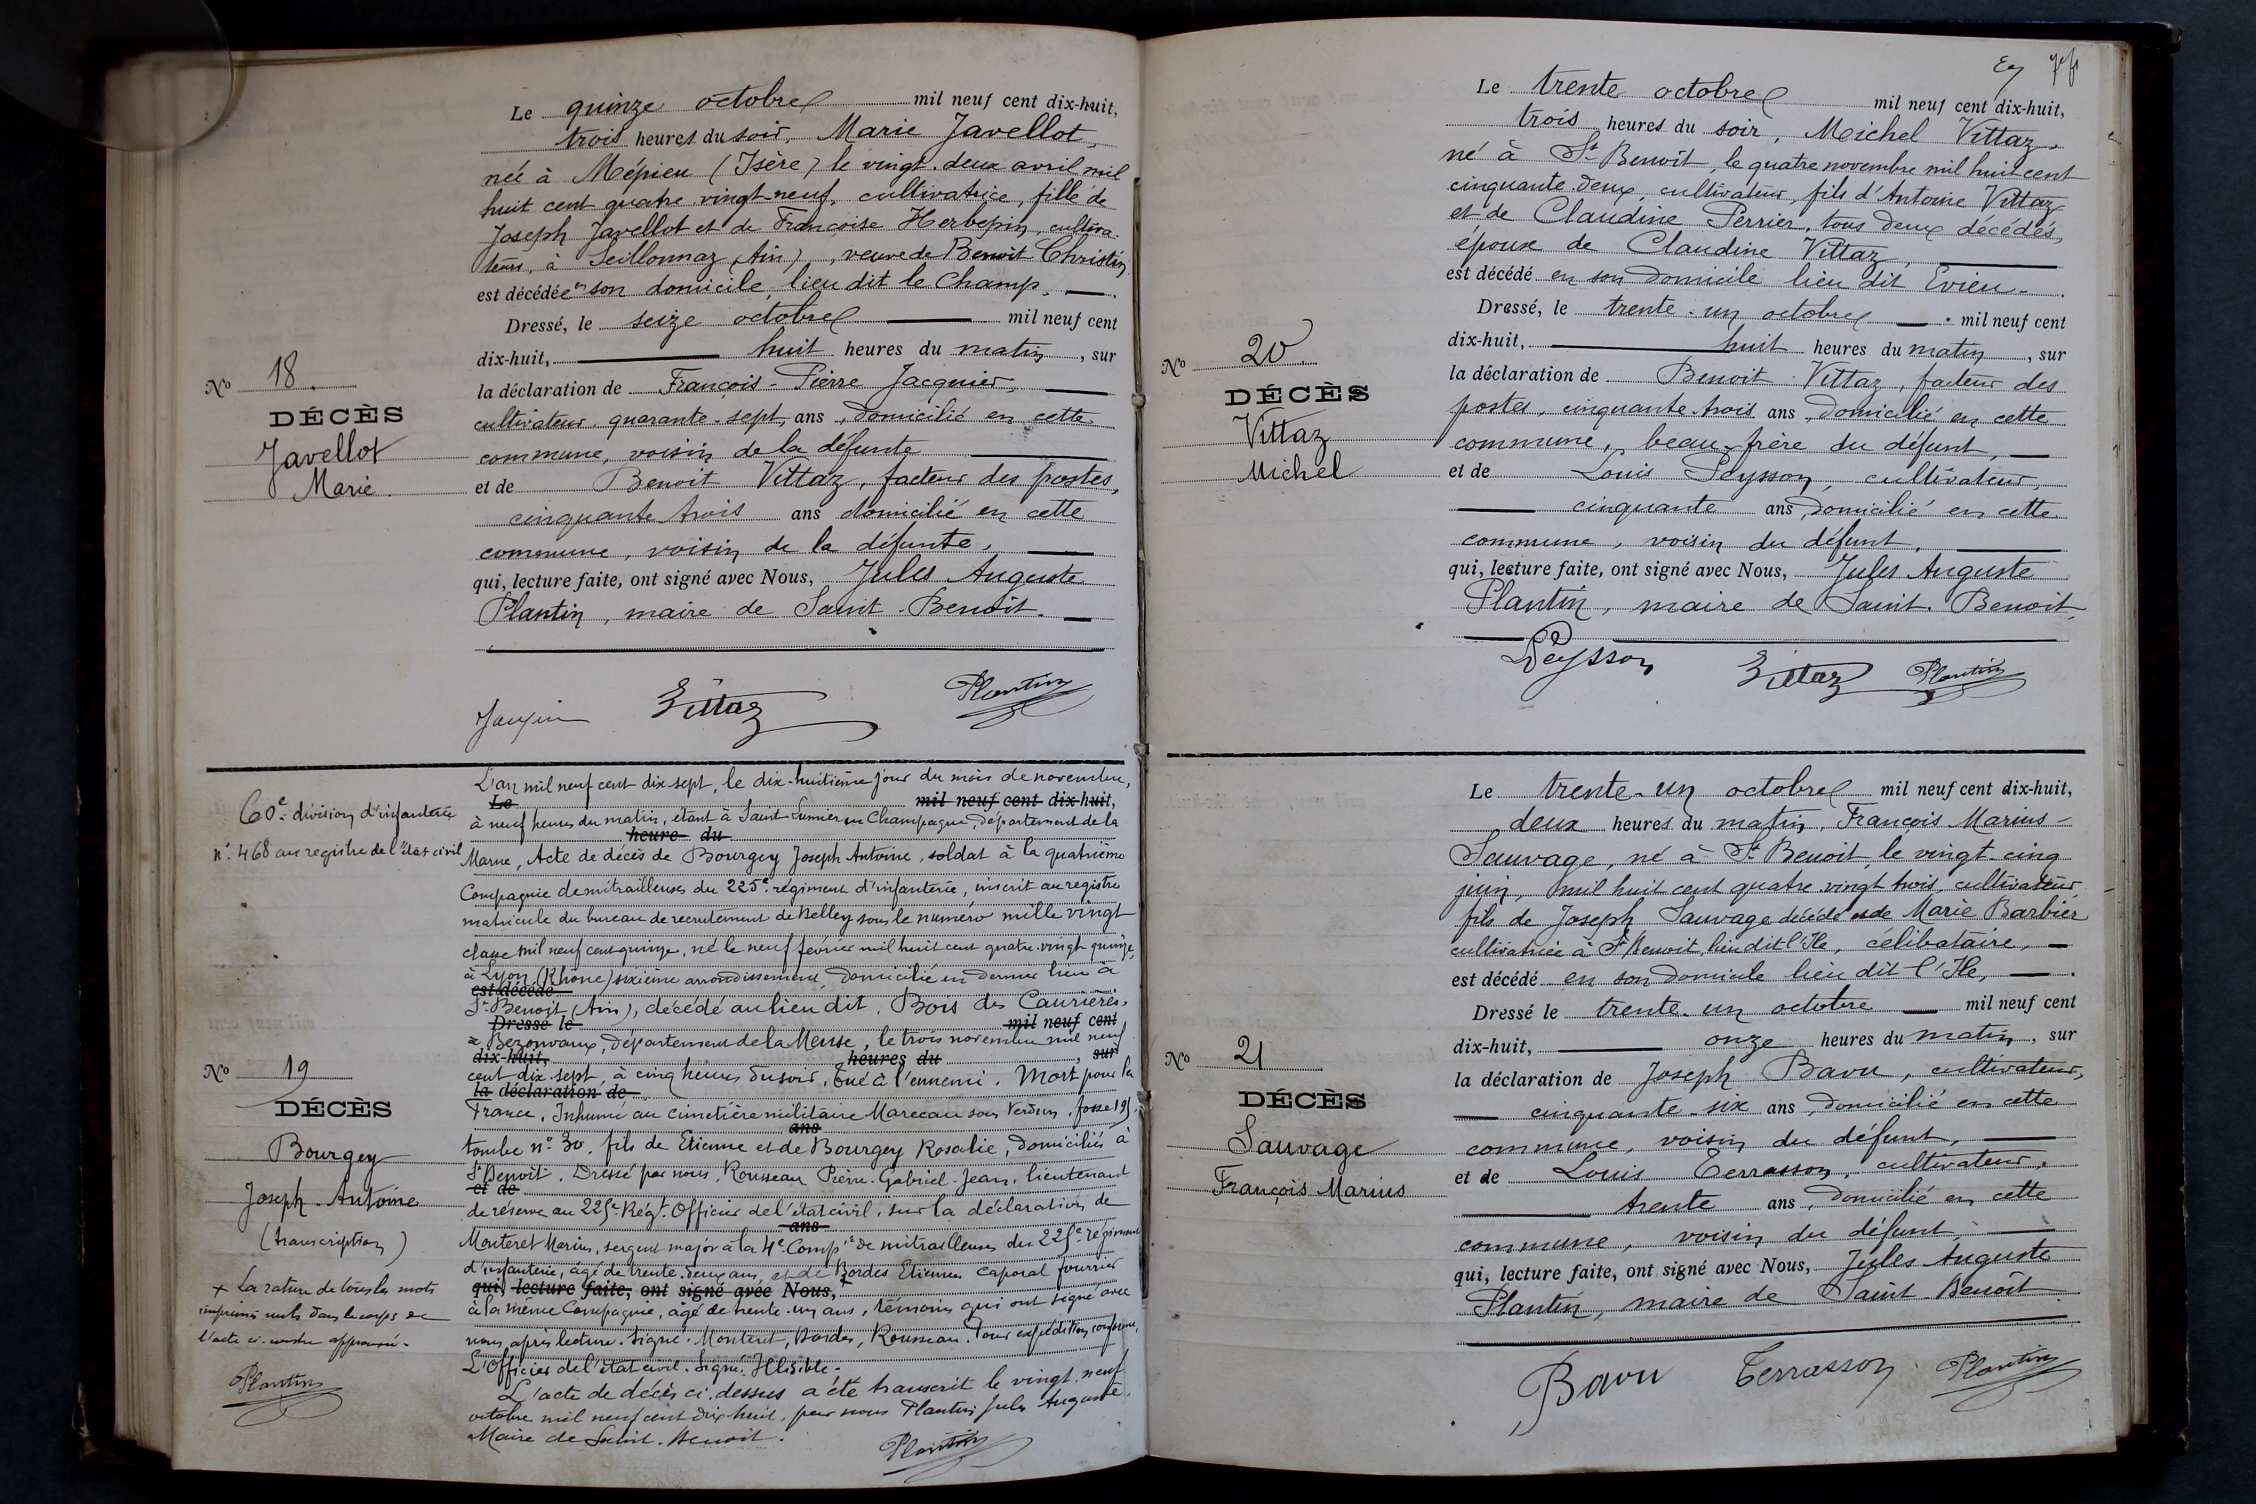 Le quinze octobre mil neuf cent dix-huit,
trois heures du soir, Marie Javellot,
née à Mépieu (Isère) le vingt-deux avril mil
huit cent quatre vingt-neuf, cultivatrice, fille de
Joseph Javellot et de Françoise Herbepin, cultiva-
teurs, à Seillonnaz (Ain), veuve de Benoit Christin
est décédée en son domicile, lieu dit le Champ.
Dressé, le seize octobre mil neuf cent
dix-huit, huit heures du matin, sur
la déclaration de François-Pierre Jacquier,
cultivateur quarante-sept, ans, domicilié en cette
commune, voisin de la défunte
et de Benoit Vittaz, facteur des postes,
cinquante trois ans domicilié en cette
commune, voisin de la défunte,
qui, lecture faite, ont signé avec Nous, Jules Auguste
Plantin, maire de Saint-Benoit.
No 18.
DÉCÈS
Javellot
Marie.
Vittaz Plantin
60e division d'infanterie
n° 468 au registre de l'état civil
No 19
DÉCÈS
Bourgey
Joseph-Antoine
(transcription)
+ La rature de tous les mots
imprimés nuls dans le corps de
l'acte ci-contre approuvé.
Plantin
L'an mil neuf cent dix-sept, le dix-huitième jour du mois de novembre,
Le mil neuf cent dix-huit,
à neuf heures du matin, étant à Saint-Lumier en Champagne, département de la
heure du
Marne, Acte de décès de Bourgey Joseph Antoine, soldat à la quatrième
Compagnie de mitrailleuses du 225e régiment d'infanterie, inscrit au registre
matricule du bureau de recrutement de Belley sous le numéro mille vingt
classe mil neuf cent quinze, né le neuf février mil huit cent quatre-vingt quinze,
à Lyon (Rhône) sixième arrondissement, domicilié en dernier lieu à
est décédé
St-Benoit (Ain), décédé au lieu dit, Bois des Caurières,
Dressé le mil neuf cent
à Bezonvaux, département de la Meuse, le trois novembre mil neuf
dix-huit, heures du, sur
cent dix-sept à cinq heures du soir, tué à l'ennemi. Mort pour la
la déclaration de
France. Inhumé au cimetière militaire Marceau sous Verdun, fosse 195
ans
tombe n° 30. fils de Etienne et de Bourgey Rosalie, domiciliés à
St Benoit. Dressé par nous, Rousseau Pierre-Gabriel-Jean, lieutenant
et de
de réserve au 225e Régt. Officier de l'état civil, sur la déclaration de
ans
Monteret Marius, sergent major à la 4e Compie de mitrailleuses du 225e régiment
d'infanterie, âgé de trente-deux ans, et de Bordes Etienne caporal fourrier
qui, lecture faite, ont signé avec Nous,
à la même Compagnie, âgé de trente-un ans, témoins qui ont signé avec
nous après lecture. Signé: Monteret, Bordes, Rousseau. Pour expédition conforme,
L'Officier de l'état civil. Signé: Illisible.
L'acte de décès ci-dessus a été transcrit le vingt-neuf
octobre mil neuf cent dix huit, par nous Plantin Jules Auguste,
Maire de Saint-Benoit.
Plantin
Le trente octobre mil neuf cent dix-huit,
trois heures du soir, Michel Vittaz,
né à St-Benoît, le quatre novembre mil huit cent
cinquante-deux, cultivateur, fils d'Antoine Vittaz
et de Claudine Perrier, tous deux décédés,
époux de Claudine Vittaz,
est décédé en son domicile lieu dit Evieu.
Dressé, le trente-un octobre mil neuf cent
dix-huit, huit heures du matin, sur
la déclaration de Benoit Vittaz, facteur des
postes, cinquante-trois ans, domicilié en cette
commune, beau-frère du défunt,
et de Louis Peysson, cultivateur,
cinquante ans, domicilié en cette
commune, voisin du défunt,
qui, lecture faite, ont signé avec Nous, Jules Auguste
Plantin, maire de Saint-Benoit,
No 20.
DÉCÈS
Vittaz
Michel
Peysson Vittaz Plantin
Le trente-un octobre mil neuf cent dix-huit,
deux heures du matin, François Marius
Sauvage, né à St-Benoit, le vingt-cinq
juin, mil huit cent quatre-vingt trois, cultivateur,
fils de Joseph Sauvage décédé et de Marie Barbier
cultivatrice à St Benoit, lieu dit l'Ile, célibataire,
est décédé en son domicile lieu dit l'Ile,
Dressé le trente-un octobre mil neuf cent
dix-huit, onze heures du matin, sur
la déclaration de Joseph Bavu, cultivateur,
cinquante-six ans, domicilié en cette
commune, voisin du défunt,
et de Louis Terrasson, cultivateur,
trente ans, domicilié en cette
commune, voisin du défunt,
qui, lecture faite, ont signé avec Nous, Jules Auguste
Plantin, maire de Saint-Benoît
No 21
DÉCÈS
Sauvage
François Marius
Bavu Terrasson Plantin